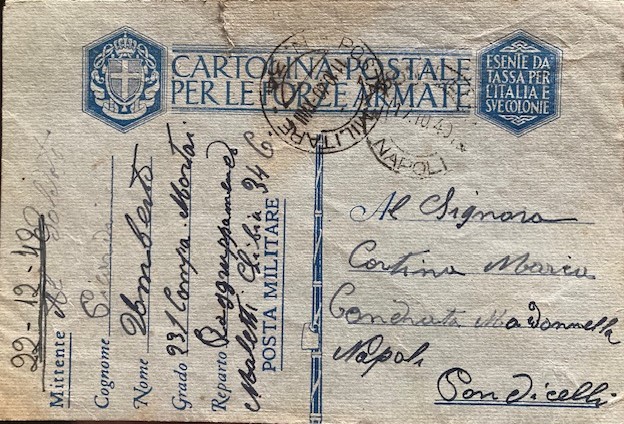 CARTOLINA POSTALE
PER LE FORZE ARMATE
ESENTE DA
TASSA PER
L'ITALIA E
SVE COLONIE
POSTA MILITARE
17.10.40
NAPOLI
22-12-42
Mittente
Cognome
Nome Umberto
Grado 231 Compa. Mortai
Reparto Raggruppamento
Maletti Libia
POSTA MILITARE 34 C
Al Signora
Cortina Maria
Contrata Madonnella
Napoli
Pondicelli